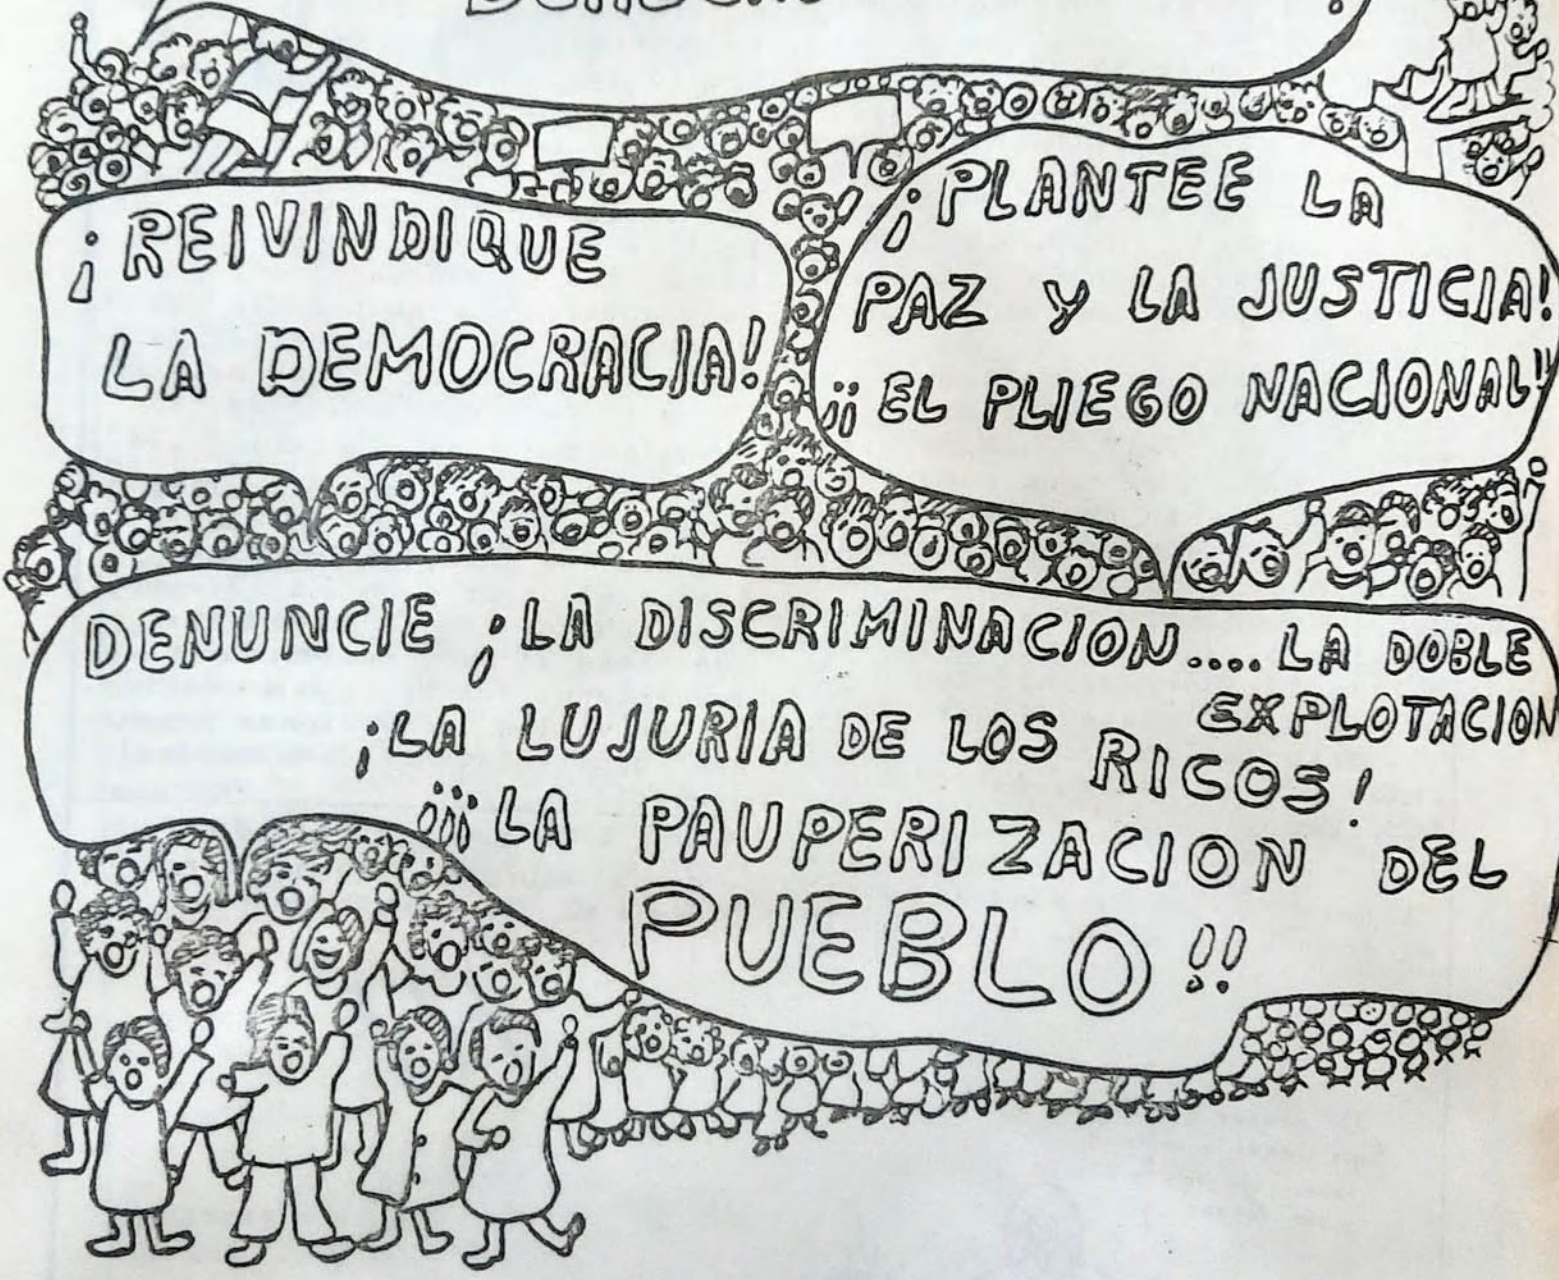 ¡REIVINDIQUE
LA DEMOCRACIA!
¡PLANTEE LA
PAZ Y LA JUSTICIA!
¡¡EL PLIEGO NACIONAL!!
DENUNCIE ¡LA DISCRIMINACION.... LA DOBLE
EXPLOTACION
¡LA LUJURIA DE LOS RICOS!
¡¡¡LA PAUPERIZACION DEL
PUEBLO!!